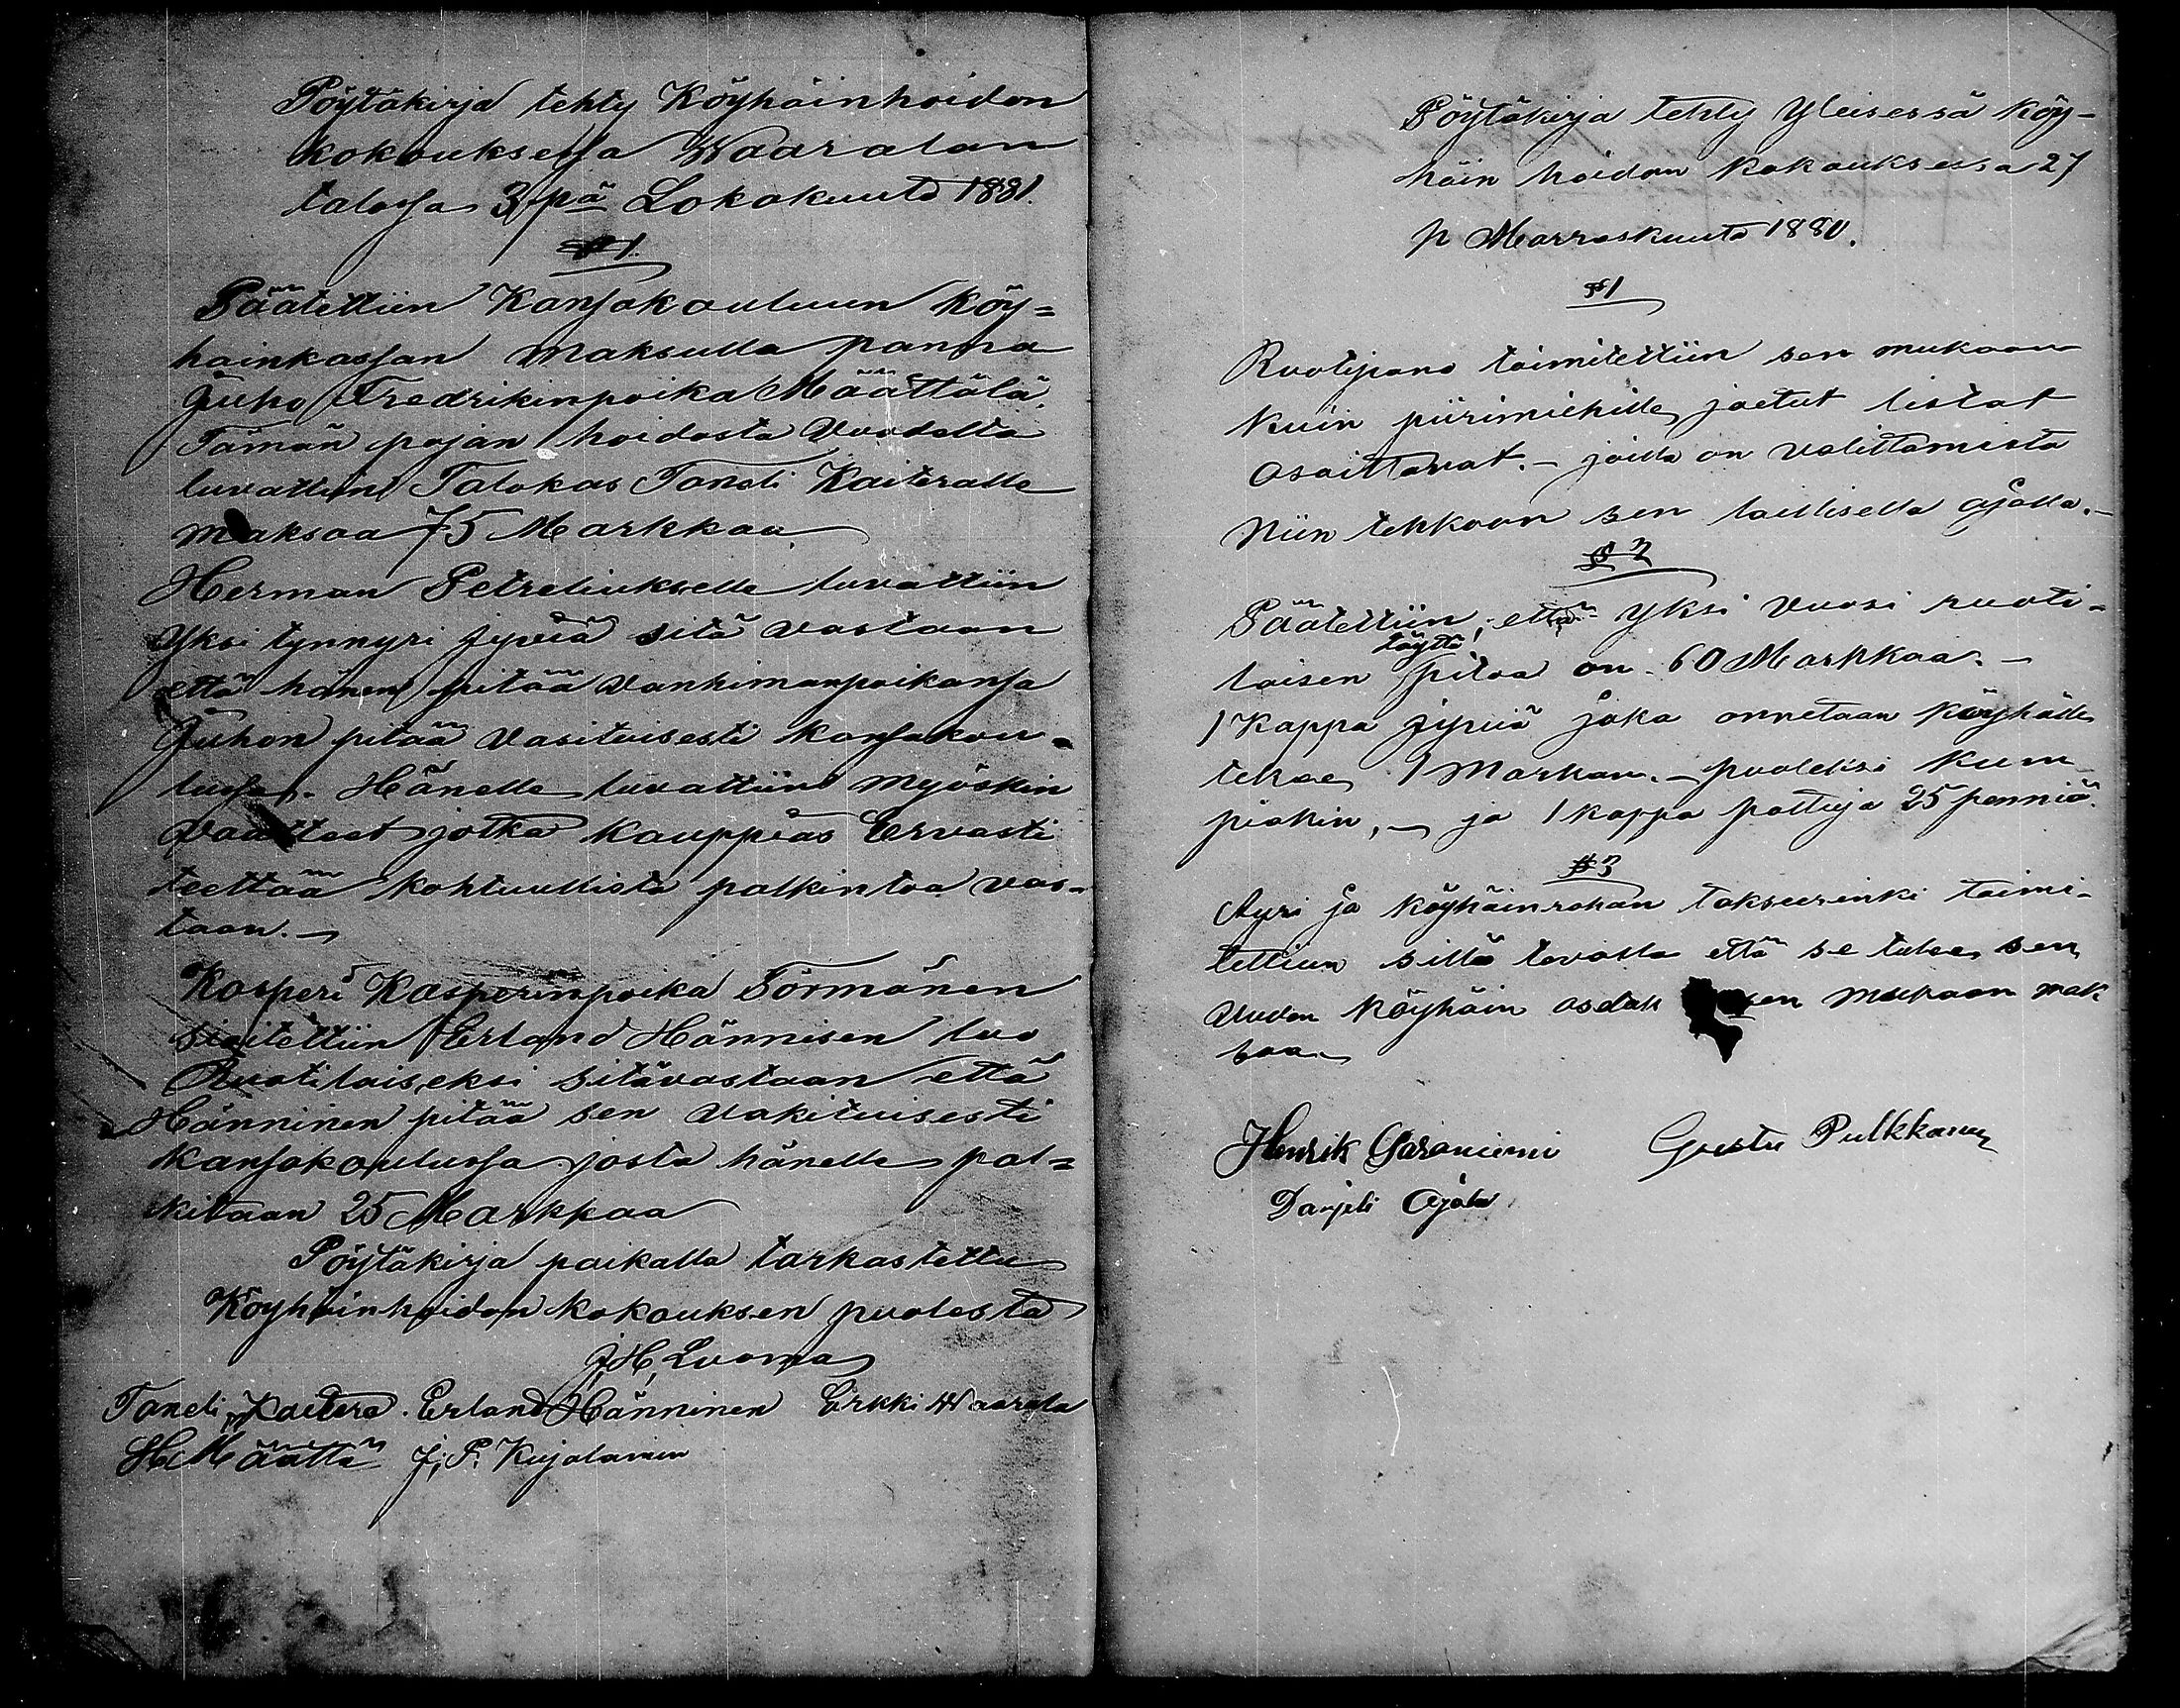 Pöytäkirja tehty Köyhäinhoidon
kokouksessa Waaralan
talossa 3 pä Lokakuuta 1881.
§ 1.
Päätettiin Kansakouluun köy=
häinkassan maksulla panna
Juho Fredrikinpoika Määttälä.
Tämän pojan hoidosta Vuodelta
luvattiin Talokas Taneli Kaiteralle
maksaa 75 Markkaa
Herman Petreliukselle luvattiin
Yksi tynnyri jyviä sitä vastaan
että hänen pitää Vanhimanpoikansa
Juhon pitää Vasituisesti kansakou-
lussa. Hänelle luvattiin myöskin
Vaatteet jotka Kauppias Ervasti
teettää kohtuullista palkintoa vas-
taan.
Kasperi Kasperinpoika Törmänen
sioitettiin Erland Hännisen luo
Ruotilaiseksi sitävastaan että
Hänninen pitää sen Vakituisesti
Kansakoulussa josta hänelle pal=
kitaan 25 Markkaa
Pöytäkirja paikalla tarkastettu
Köyhäinhoidon kokouksen puolesta
J, H, Luoma
Taneli Kaitera. Erland Hänninen Erkki Waarala
H. Määttä J. P. Kujalamin
Pöytäkirja tehty Yleisessä köy-
häin hoidon kokouksessa 27
p Marraskuuta 1881.
§ 1
Ruotijano toimitettiin sen mukaan
kuin piirimiehille jaetut listat
osoittavat. - joilla on valittamista
Niin tehkoon sen laillisella ajalla. -
§ 2
Päätettiin, että Yksi Vuosi ruoti-
täyttä
laisen pitoa on 60 Markkaa. -
1 Kappa Jyviä joka annetaan köyhälle
tekee 1 Markan. - puoleksi kum
piakin, - ja 1 kappa pottuja 25 penniä.
§ 3
Äyri ja köyhäinrahan takseerinki toimi-
tettiin sillä tavalla että se tulee sen
Vuden Köyhäin osdak sen mukaan mak
saa
Henrik Karaniemi Gustu Pulkkanen
Danjeli Ojala